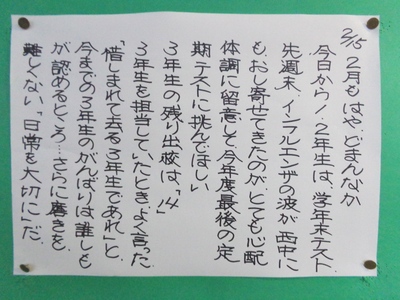 2/15
2月もはや、どまんなか
今日から1.2年生は、学年末テスト
先週末、インフルエンザの波が西中に
も、おし寄せてきたのが、とても心配
体調に留意して今年度最後の定
期テストに挑んでほしい
3年生の残り出校は、「14」
3年生を担当していたときよく言った
「惜しまれて去る3年生であれ」と、
今までの3年生のがんばりは誰しも
が認めるところ…さらに磨きを、
難しくない「日常を大切に」だ、